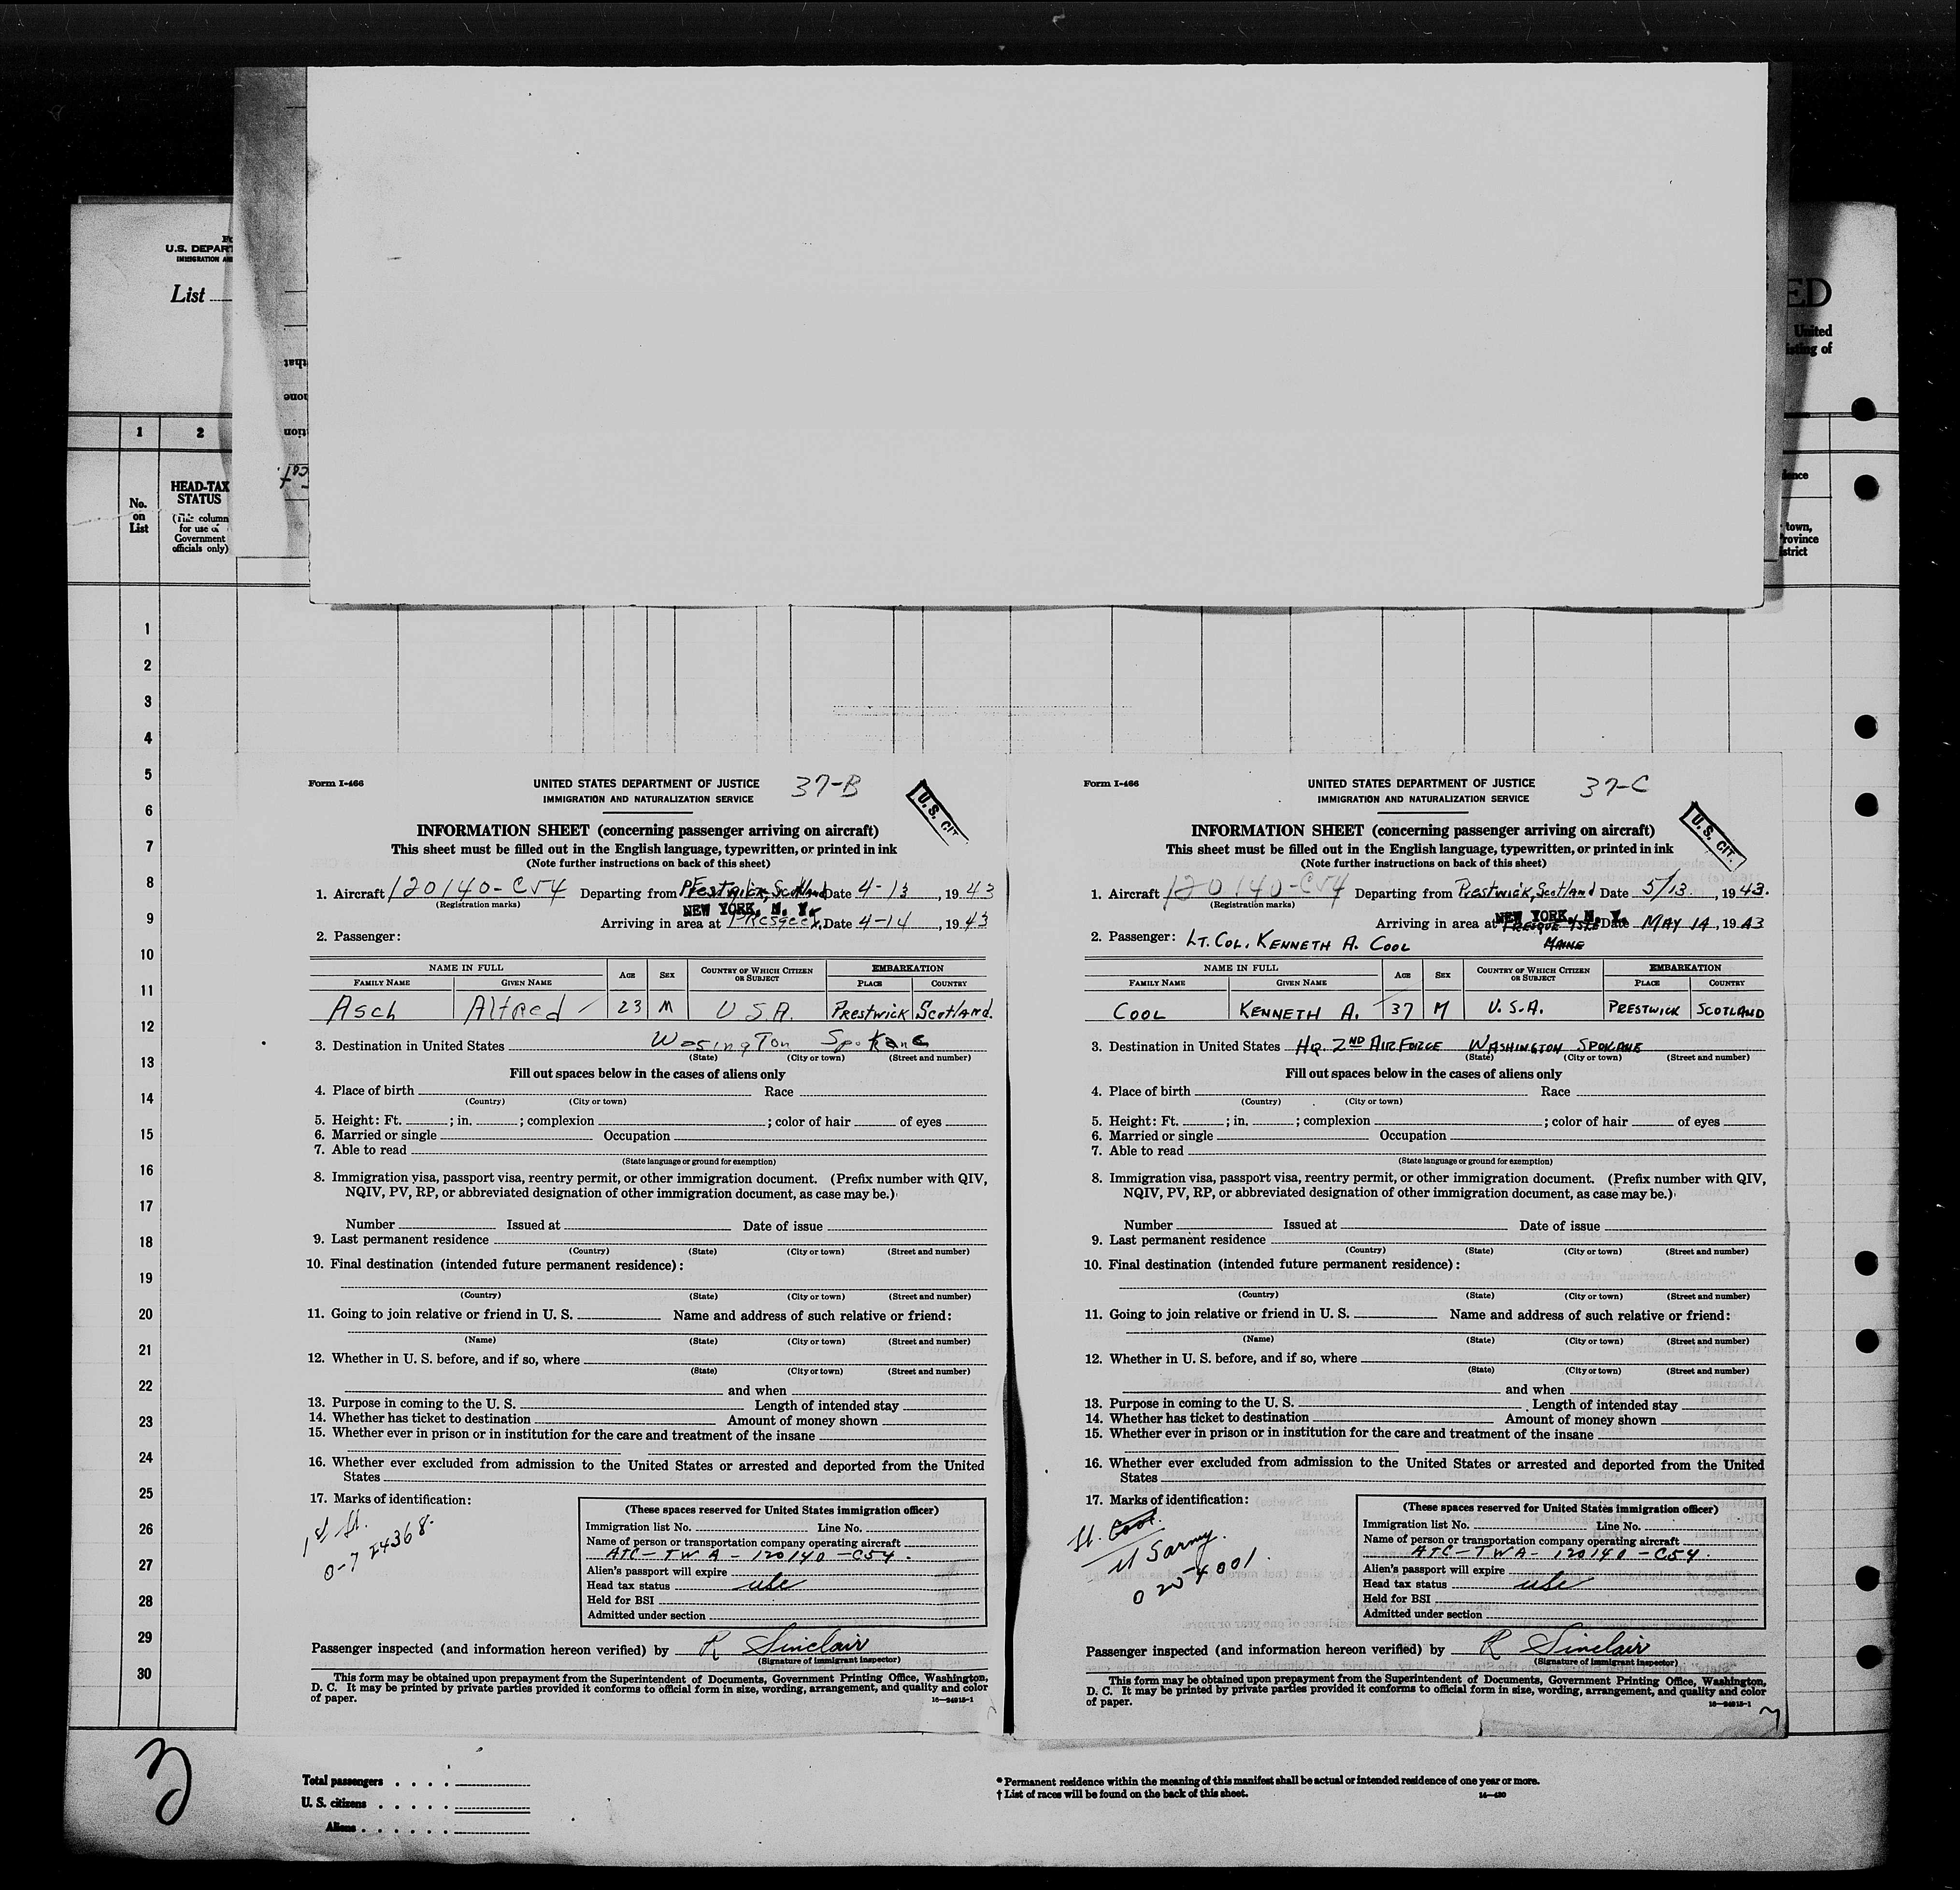 U.S. DEPART
IMMIGRATION AN
List
ED
United
isting of
1
2
No.
on
List
HEAD-TAX
STATUS
(This column
for use of
Government
officials only)
town,
Province
1
2
3
4
5
6
7
8
9
10
11
12
13
14
15
16
17
18
19
20
21
22
23
24
25
26
27
28
29
30
Form I-466
UNITED STATES DEPARTMENT OF JUSTICE 37-B
IMMIGRATION AND NATURALIZATION SERVICE
U.S. CIT.
INFORMATION SHEET (concerning passenger arriving on aircraft)
This sheet must be filled out in the English language, typewritten, or printed in ink
(Note further instructions on back of this sheet)
1. Aircraft 120140-C54 Departing from Prestwick, Scotland Date 4-13, 1943
(Registration marks)
NEW YORK, N. Y.
Arriving in area at Date 4-14, 1943
2. Passenger:
NAME IN FULL AGE SEX COUNTRY OF WHICH CITIZEN OR SUBJECT EMBARKATION
FAMILY NAME GIVEN NAME PLACE COUNTRY
Asch Alfred 23 M U.S.A. Prestwick Scotland.
3. Destination in United States Wasington Spokane
(State) (City or town) (Street and number)
Fill out spaces below in the cases of aliens only
4. Place of birth Race
(Country) (City or town)
5. Height: Ft. ; in. ; complexion ; color of hair of eyes
6. Married or single Occupation
7. Able to read
(State language or ground for exemption)
8. Immigration visa, passport visa, reentry permit, or other immigration document. (Prefix number with QIV,
NQIV, PV, RP, or abbreviated designation of other immigration document, as case may be.)
Number Issued at Date of issue
9. Last permanent residence
(Country) (State) (City or town) (Street and number)
10. Final destination (intended future permanent residence):
(Country) (State) (City or town) (Street and number)
11. Going to join relative or friend in U. S. Name and address of such relative or friend:
(Name) (State) (City or town) (Street and number)
12. Whether in U. S. before, and if so, where
(State) (City or town) (Street and number)
and when
13. Purpose in coming to the U. S. Length of intended stay
14. Whether has ticket to destination Amount of money shown
15. Whether ever in prison or in institution for the care and treatment of the insane
16. Whether ever excluded from admission to the United States or arrested and deported from the United
States
17. Marks of identification:
1st Lt.
0-724368
(These spaces reserved for United States immigration officer)
Immigration list No. Line No.
Name of person or transportation company operating aircraft
ATC-TWA-120140-C54.
Alien's passport will expire
Head tax status usc
Held for BSI
Admitted under section
Passenger inspected (and information hereon verified) by R Sinclair
(Signature of immigrant inspector)
This form may be obtained upon prepayment from the Superintendent of Documents, Government Printing Office, Washington,
D. C. It may be printed by private parties provided it conforms to official form in size, wording, arrangement, and quality and color
of paper. 16-24915-1
Form I-466
UNITED STATES DEPARTMENT OF JUSTICE 37-C
IMMIGRATION AND NATURALIZATION SERVICE
U.S. CIT.
INFORMATION SHEET (concerning passenger arriving on aircraft)
This sheet must be filled out in the English language, typewritten, or printed in ink
(Note further instructions on back of this sheet)
1. Aircraft 120140-C54 Departing from Prestwick, Scotland Date 5/13, 1943.
(Registration marks)
NEW YORK, N. Y.
Arriving in area at PRESQUE ISLE Date MAY 14, 1943
MAINE
2. Passenger: LT. COL. KENNETH A. COOL
NAME IN FULL AGE SEX COUNTRY OF WHICH CITIZEN OR SUBJECT EMBARKATION
FAMILY NAME GIVEN NAME PLACE COUNTRY
COOL KENNETH A. 37 M U.S.A. PRESTWICK SCOTLAND
3. Destination in United States HQ. 2ND AIR FORCE WASHINGTON SPOKANE
(State) (City or town) (Street and number)
Fill out spaces below in the cases of aliens only
4. Place of birth Race
(Country) (City or town)
5. Height: Ft. ; in. ; complexion ; color of hair of eyes
6. Married or single Occupation
7. Able to read
(State language or ground for exemption)
8. Immigration visa, passport visa, reentry permit, or other immigration document. (Prefix number with QIV,
NQIV, PV, RP, or abbreviated designation of other immigration document, as case may be.)
Number Issued at Date of issue
9. Last permanent residence
(Country) (State) (City or town) (Street and number)
10. Final destination (intended future permanent residence):
(Country) (State) (City or town) (Street and number)
11. Going to join relative or friend in U. S. Name and address of such relative or friend:
(Name) (State) (City or town) (Street and number)
12. Whether in U. S. before, and if so, where
(State) (City or town) (Street and number)
and when
13. Purpose in coming to the U. S. Length of intended stay
14. Whether has ticket to destination Amount of money shown
15. Whether ever in prison or in institution for the care and treatment of the insane
16. Whether ever excluded from admission to the United States or arrested and deported from the United
States
17. Marks of identification:
(These spaces reserved for United States immigration officer)
Immigration list No. Line No.
Name of person or transportation company operating aircraft
ATC-TWA-120140-C54.
Alien's passport will expire
Head tax status usc
Held for BSI
Admitted under section
Passenger inspected (and information hereon verified) by R Sinclair
(Signature of immigrant inspector)
This form may be obtained upon prepayment from the Superintendent of Documents, Government Printing Office, Washington,
D. C. It may be printed by private parties provided it conforms to official form in size, wording, arrangement, and quality and color
of paper. 16-24915-1
Total passengers
U. S. citizens
Aliens
* Permanent residence within the meaning of this manifest shall be actual or intended residence of one year or more.
† List of races will be found on the back of this sheet.